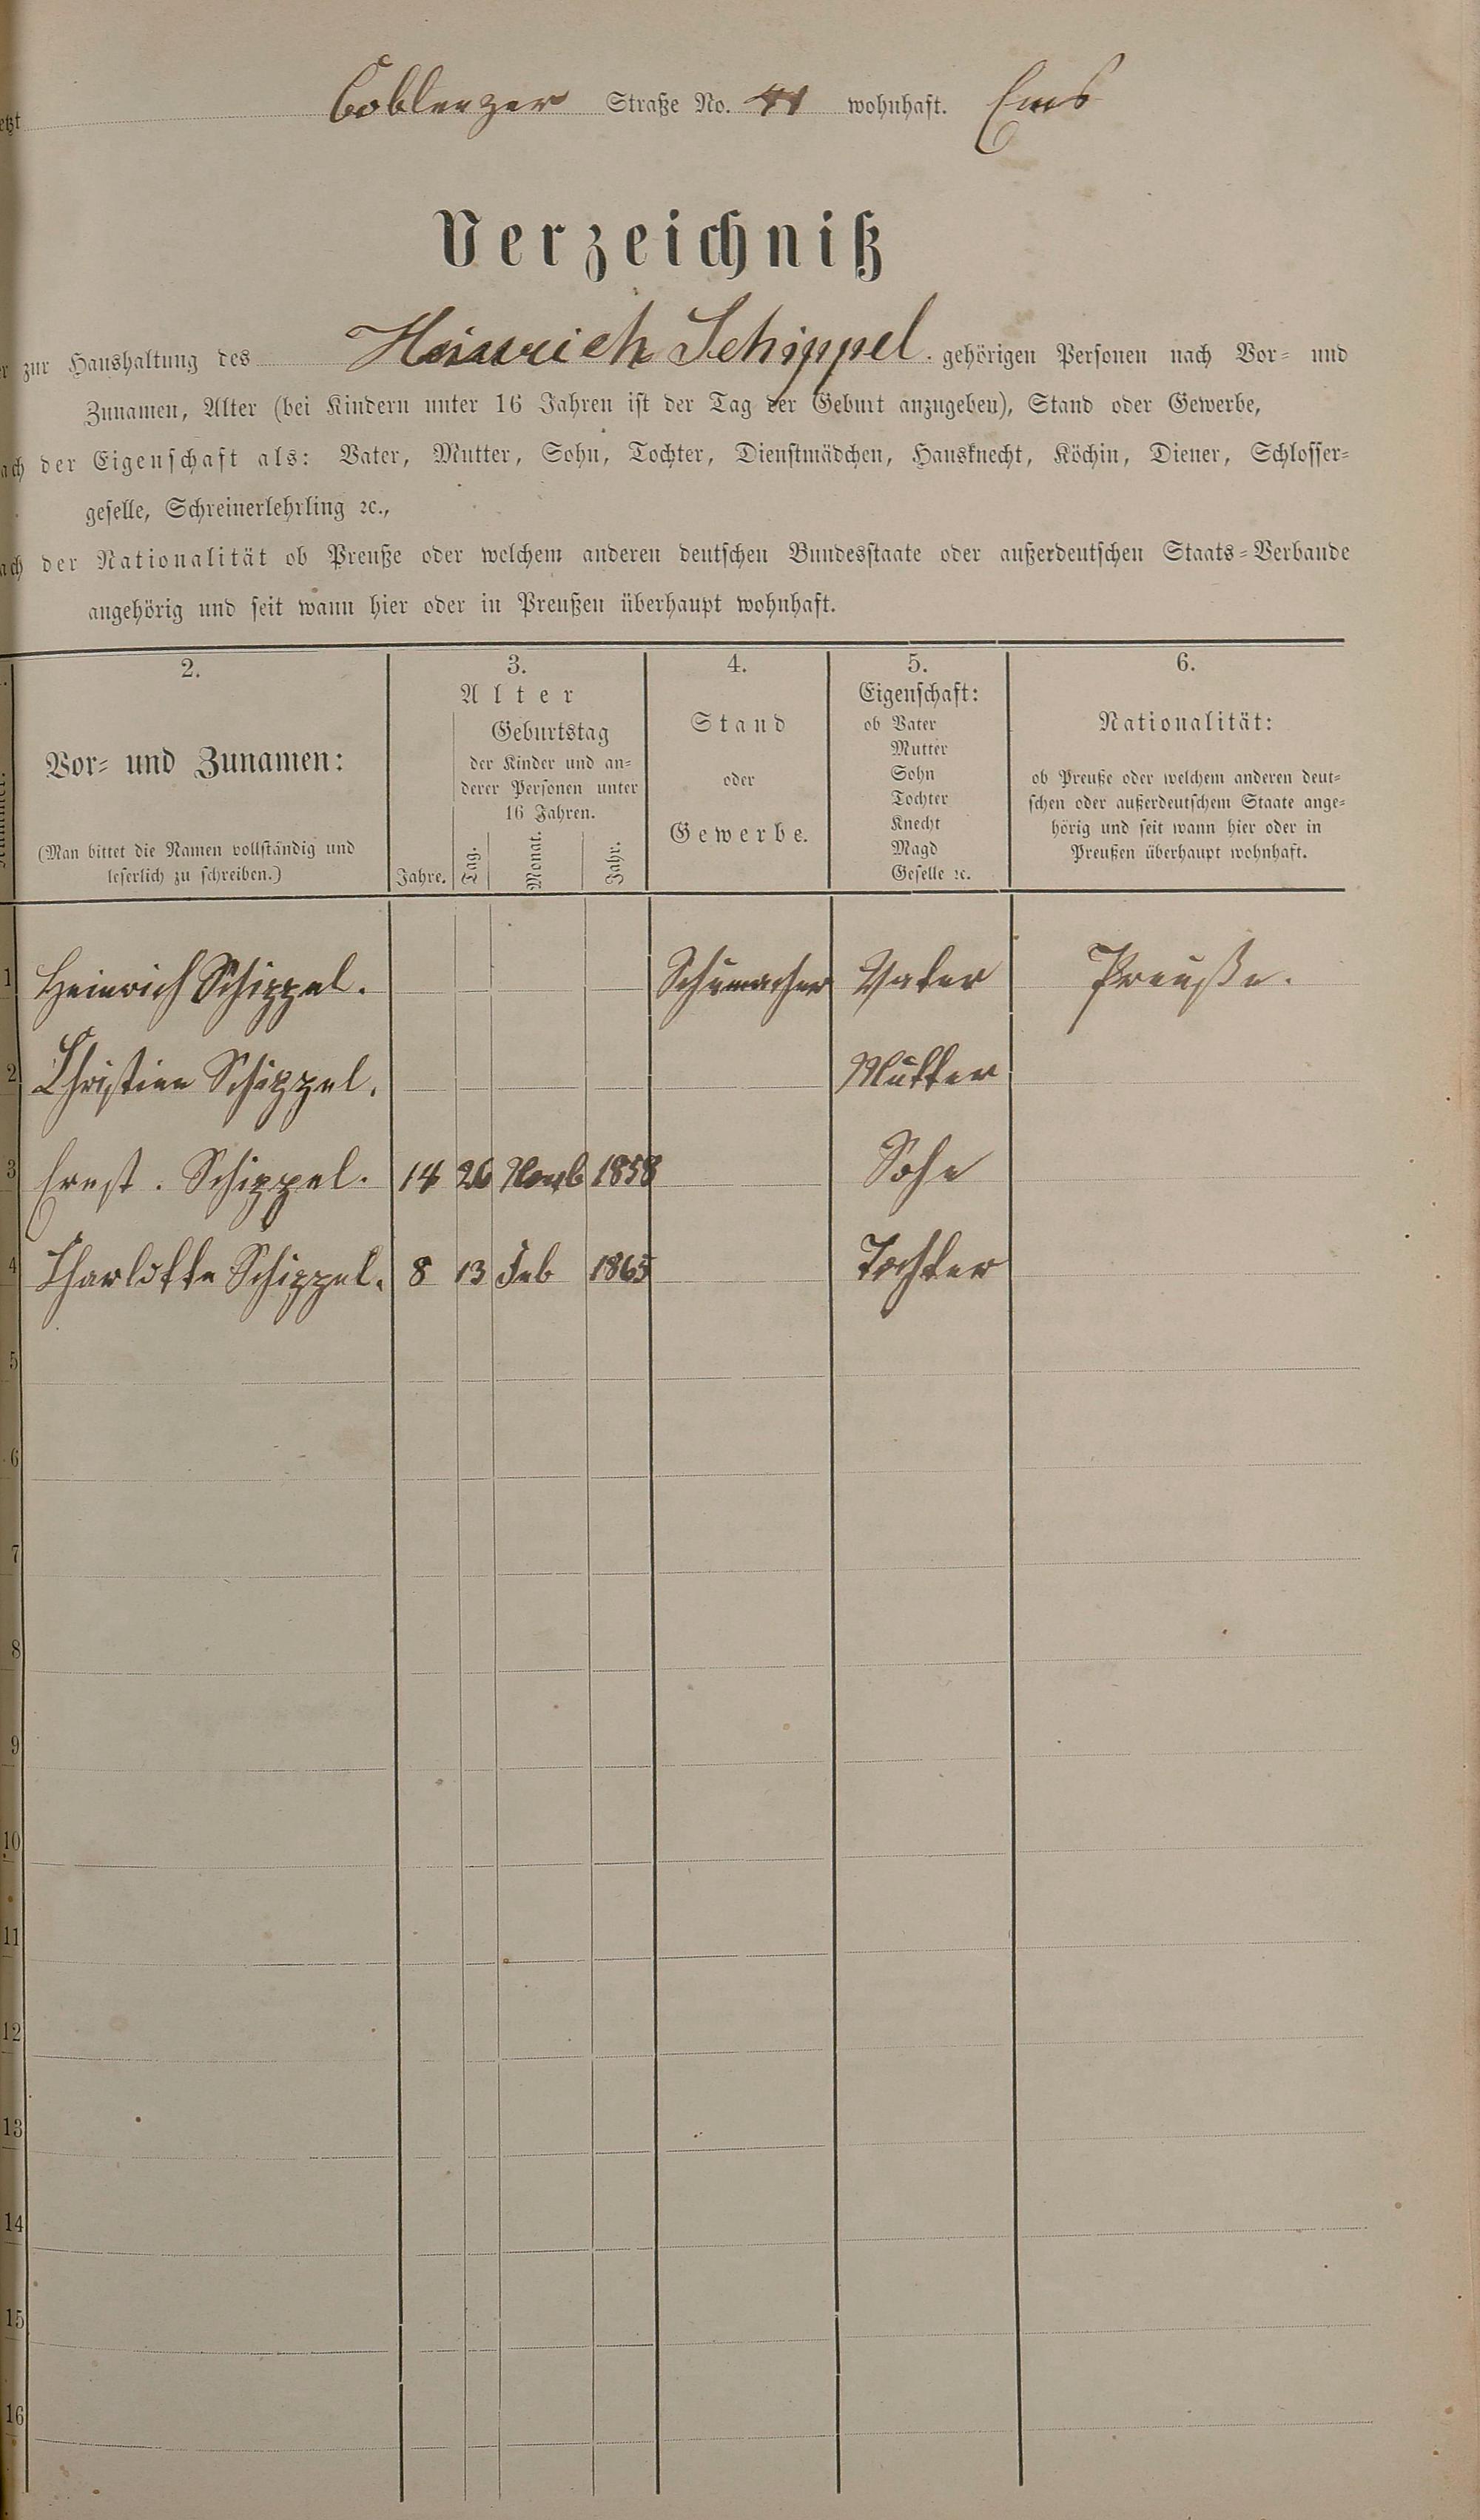 etzt Coblenzer Straße No. 41 wohnhaft. Ems
Verzeichniß
zur Haushaltung des Heinrich Schippel. gehörigen Personen nach Vor- und
Zunamen, Alter (bei Kindern unter 16 Jahren ist der Tag der Geburt anzugeben), Stand oder Gewerbe,
ach der Eigenschaft als: Vater, Mutter, Sohn, Tochter, Dienstmädchen, Hausknecht, Köchin, Diener, Schlosser-
geselle, Schreinerlehrling ꝛc.,
ach der Nationalität ob Preuße oder welchem anderen deutschen Bundesstaate oder außerdeutschen Staats-Verbande
angehörig und seit wann hier oder in Preußen überhaupt wohnhaft.
2.
Vor- und Zunamen:
(Man bittet die Namen vollständig und
leserlich zu schreiben.)
3.
Alter
Jahre.
Geburtstag
der Kinder und an-
derer Personen unter
16 Jahren.
Tag.
Monat.
Jahr.
4.
Stand
oder
Gewerbe.
5.
Eigenschaft:
ob Vater
Mutter
Sohn
Tochter
Knecht
Magd
Geselle ꝛc.
6.
Nationalität:
ob Preuße oder welchem anderen deut-
schen oder außerdeutschem Staate ange-
hörig und seit wann hier oder in
Preußen überhaupt wohnhaft.
1 Heinrich Schippel. Schumacher Vater Preuße.
2 Christine Schippel. Mutter
3 Ernst. Schippel. 14 26 Novb 1858 Sohn
4 Charlotte Schippel. 8 13 Feb 1865 Tochter
5
6
7
8
9
10
11
12
13
14
15
16